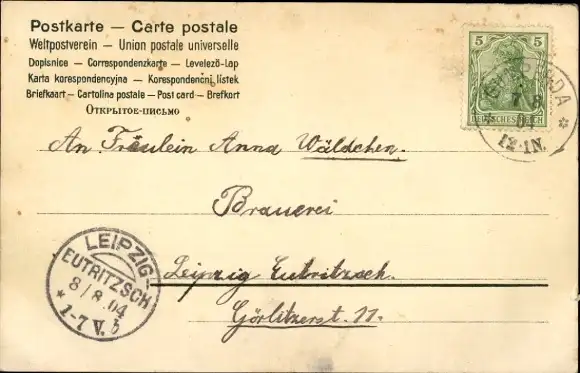 Postkarte — Carte postale
Weltpostverein — Union postale universelle
Dopisnice — Correspondenzkarte — Levelező-Lap
Karta korespondencyjna — Korespondenční lístek
Briefkaart — Cartolina postale — Post card — Brefkort
Открытое-письмо
5 5
DEUTSCHES REICH
7 8
04
12-1N.
An Fräulein Anna Wäldchen.
Brauerei
Leipzig Eutritzsch.
Görlitzerst. 11.
LEIPZIG-
EUTRITZSCH
8/8.04
* 1-7 V. b